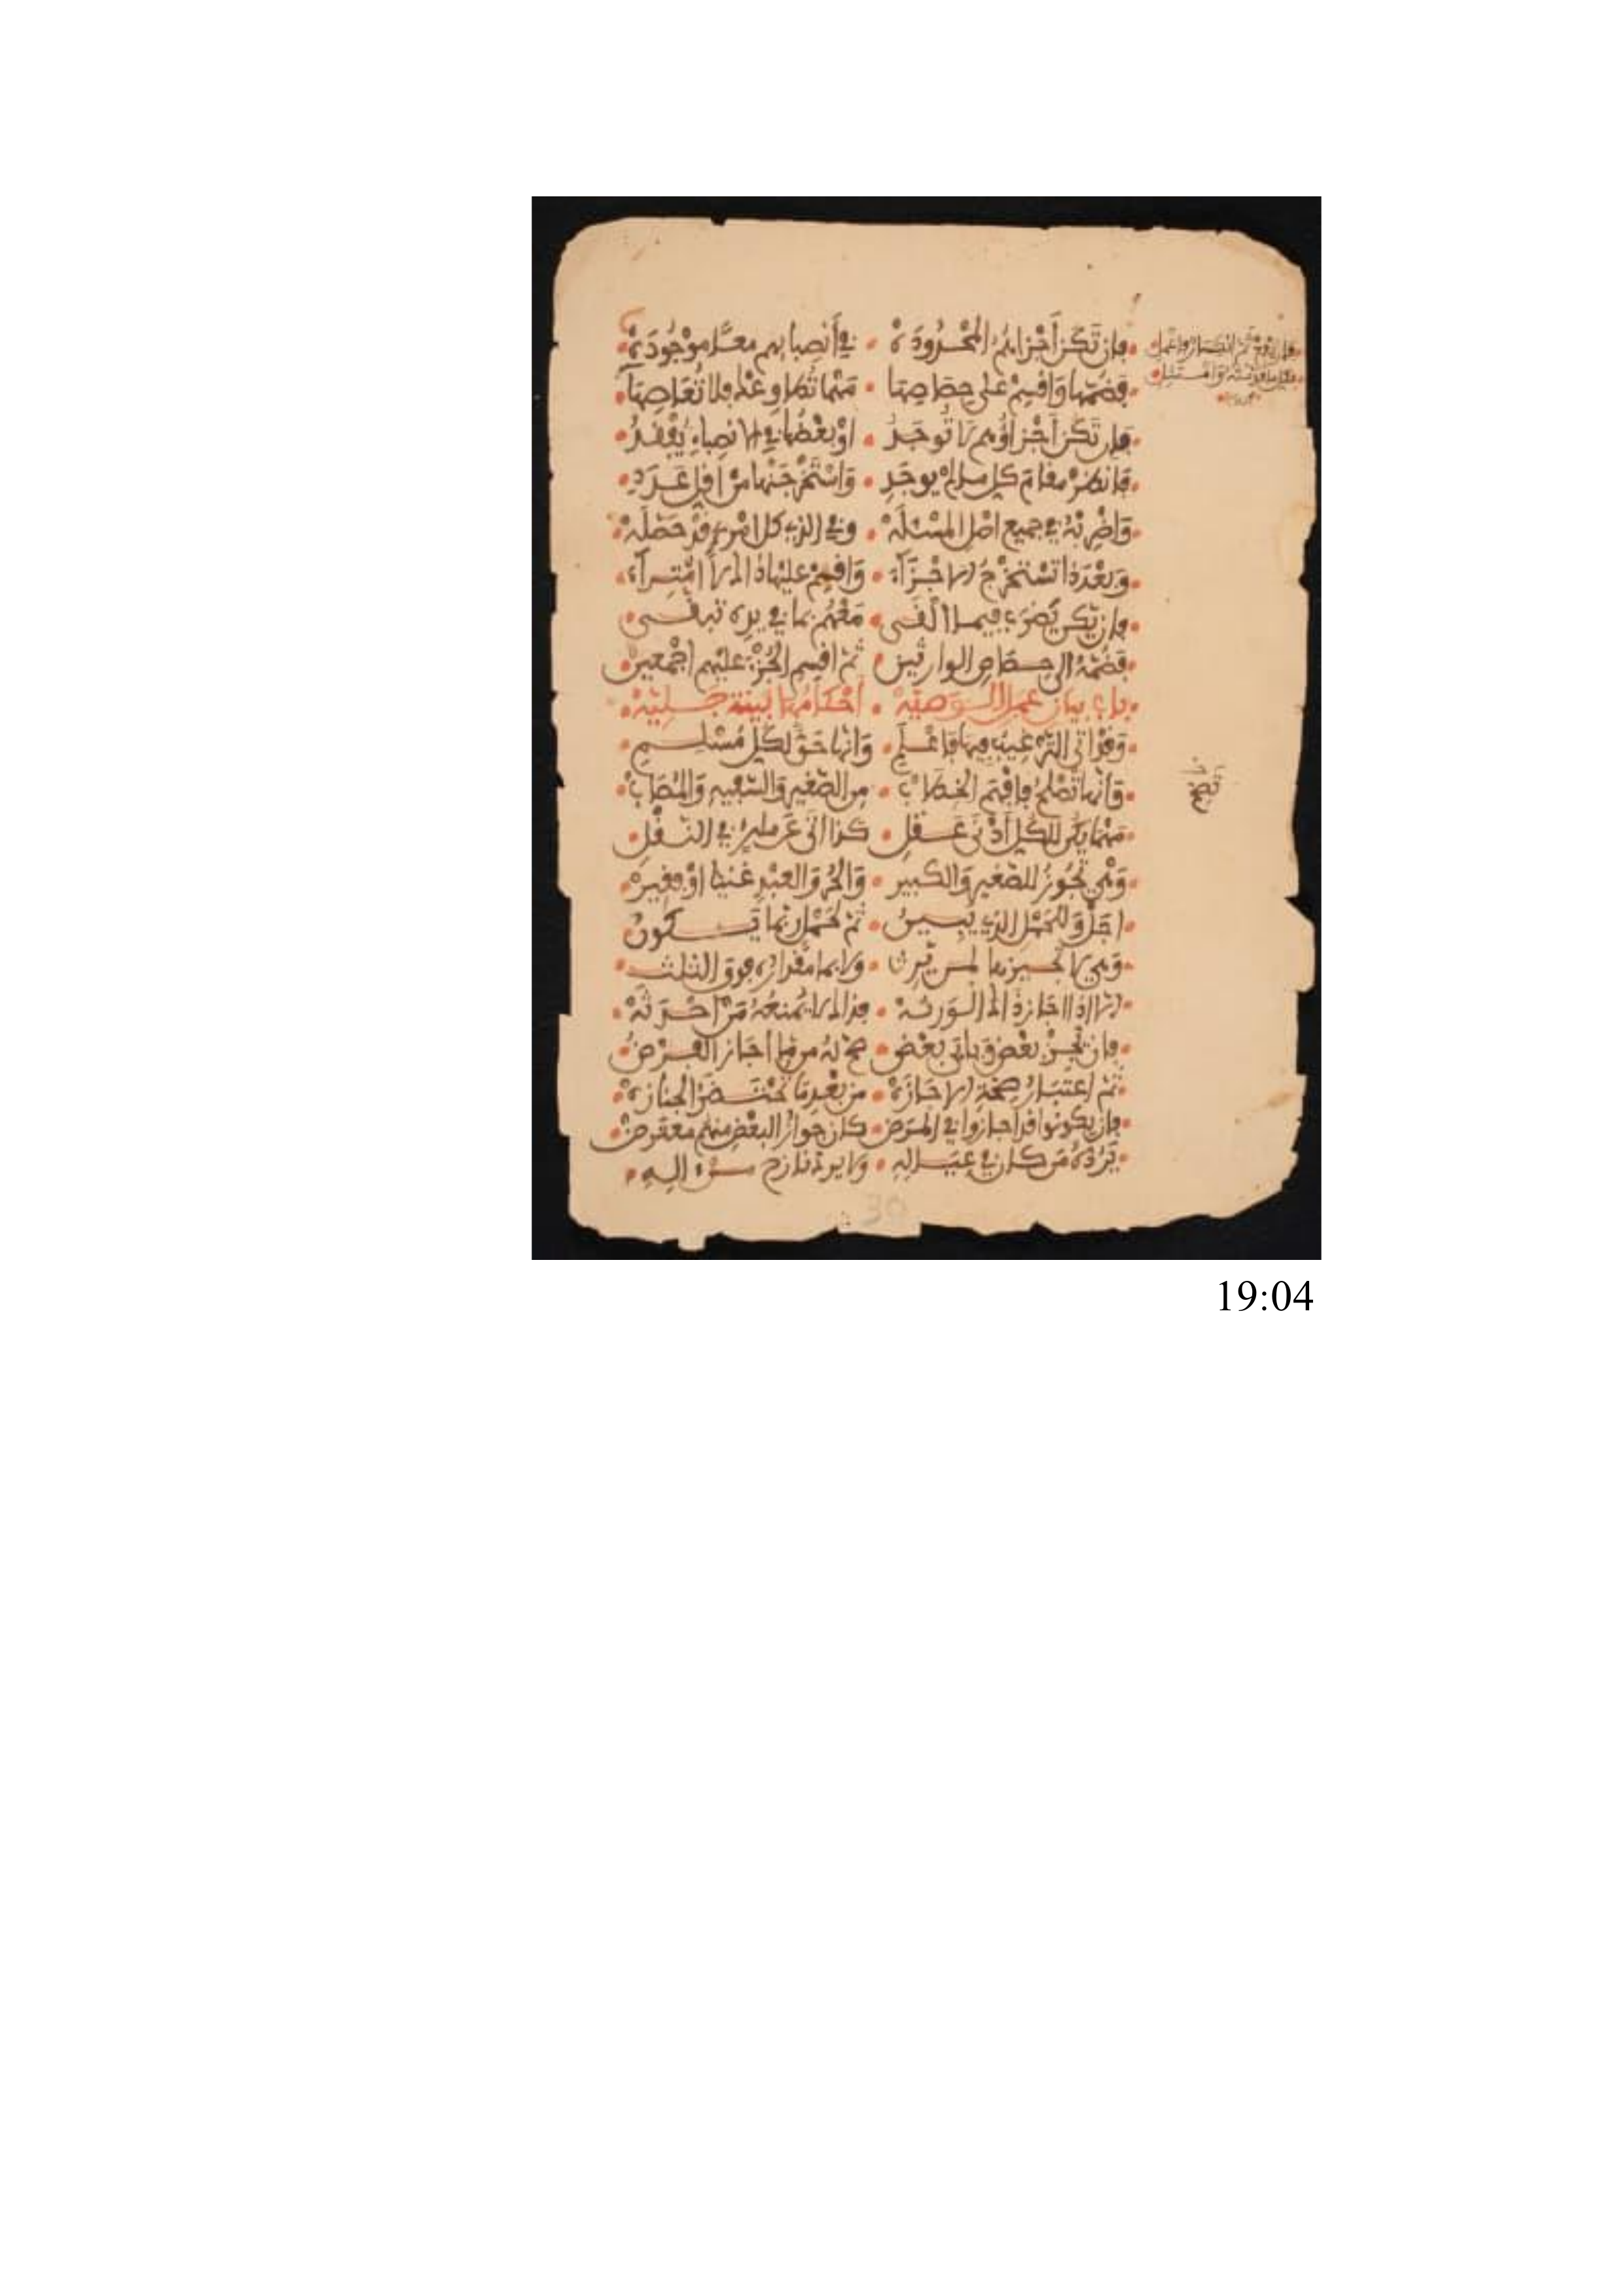 فإن تكن أجزاؤهم المحدودة • في أنصبائهم معا موجودة
فضمها واقسم على حصاصها • مهما تطاوعك فلا تعاصها
فإن تكن أجزاؤهم لا توجد • أو بعضها في الأنصباء يفقد
فانظر مقام كل ما لم يوجد • واستخرجنها من أقل عدد
واضربه في جميع أصل المسئلة • وفي الذي كل امرئ قد حصله
وبعد ذا تستخرج الأجزاء • واقسم عليها ذاك لا امتراء
فإن يكن يضرب فيما ألفى • معهم بما في يده تبقى
فضمه إلى حصاص الوارثين • ثم اقسم الجزء عليهم أجمعين
باب بيان عمل الوصية • أحكامها بينة جلية
وقد أتى الترغيب فيها فاعلم • وأنها حق لكل مسلم
وأنها تصلح فافهم الخطاب • من الصغير والسفيه والمصاب
مهما يكن للكل أدنى عقل • كذا أتى عن مالك في النقل
وهي تجوز للصغير والكبير • والحر والعبد غنيا أو فقير
أجل وللحمل الذي يبين • ثم لحمل ربما يكون
وهي لا تجيزها لمن يرث • ولا بما مقداره فوق الثلث
إلا إذا أجاز ذاك الورثة • فذاك لا يمنعه من أحدثه
فإن يجز بعض ويابى بعض • صح له من ما أجاز الفرض
ثم اعتبار صحة الإجازة • من بعد ما تحتضر الجنازة
فإن يكونوا قد أجازوا في المرض • كان جواز البعض منهم معترض
يرده من كان في عياله • ولا يرد نازح
تصح
30
19:04